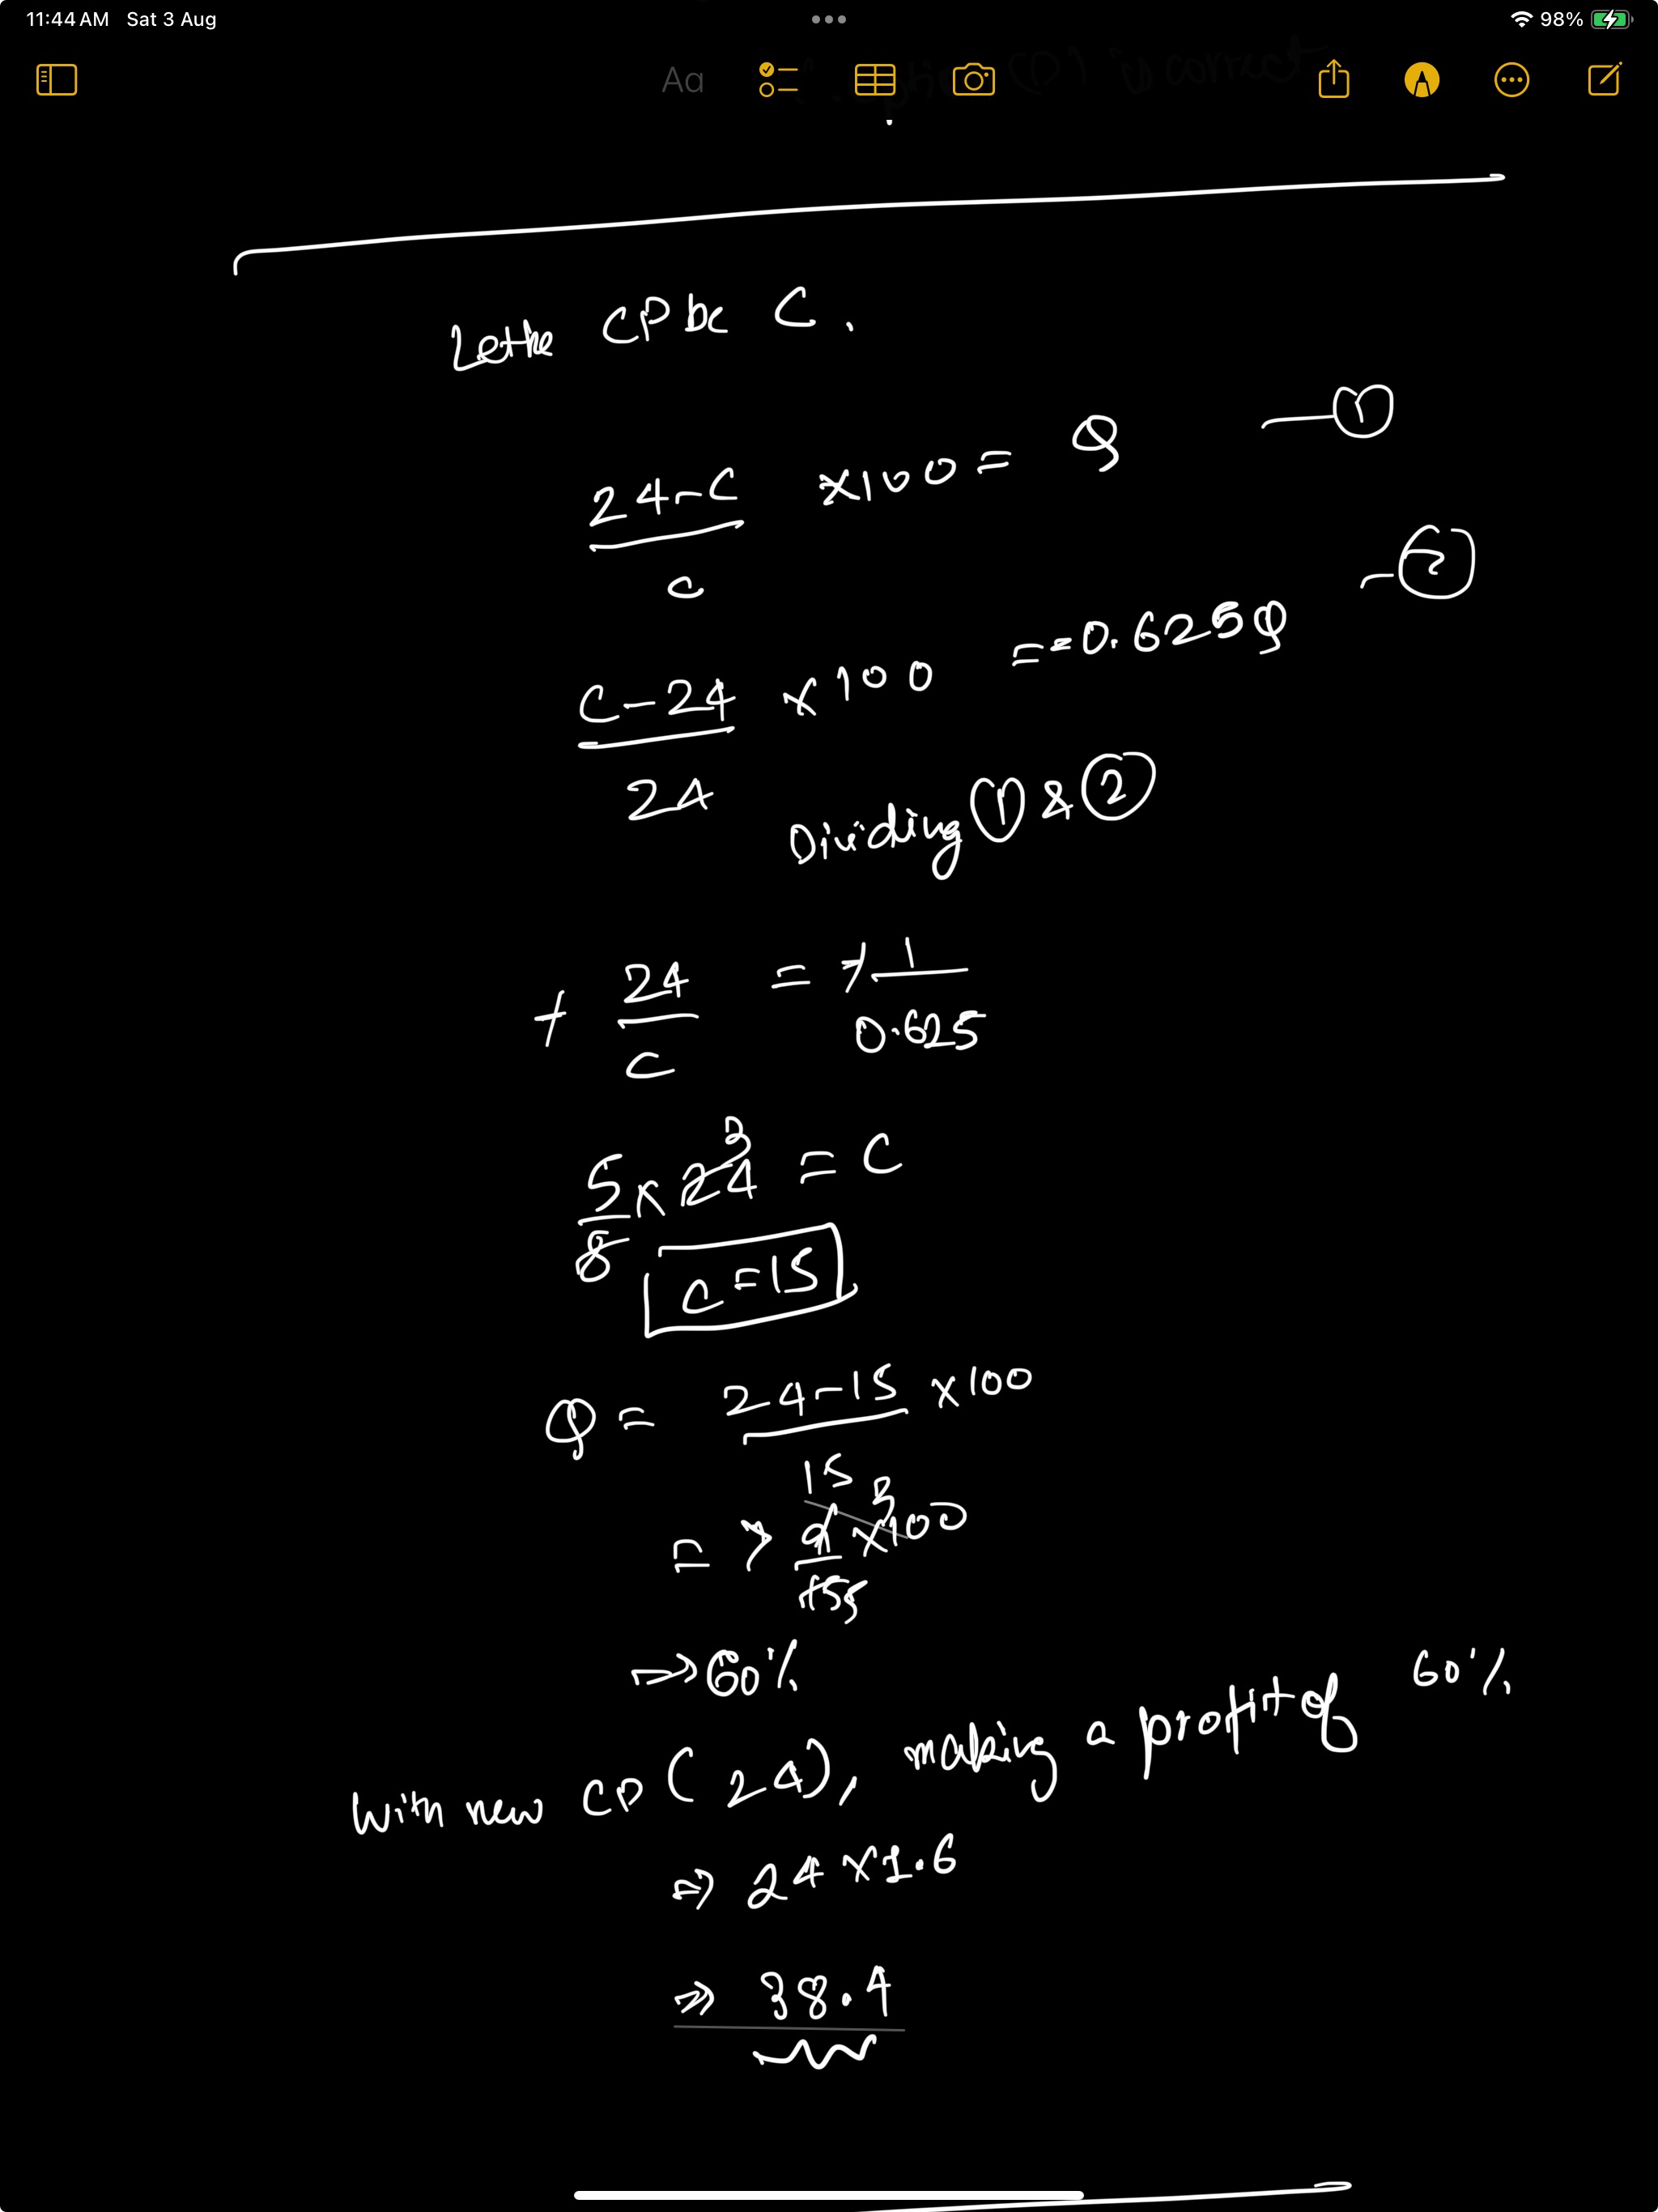 11:44 AM Sat 3 Aug
98%
Aa
Let the CP be C.
24-C/C ×100 = Q —①
C-24/24 ×100 = -0.625Q -②
Dividing ① & ②
+ 24/C = + 1/0.625
5/8 × 24 3 = C
C=15
Q = 24-15/15 ×100
= > 9/15 ×100 3 5
⇒ 60%
With new CP (24), making a profit of 60%
⇒ 24×1.6
⇒ 38.4